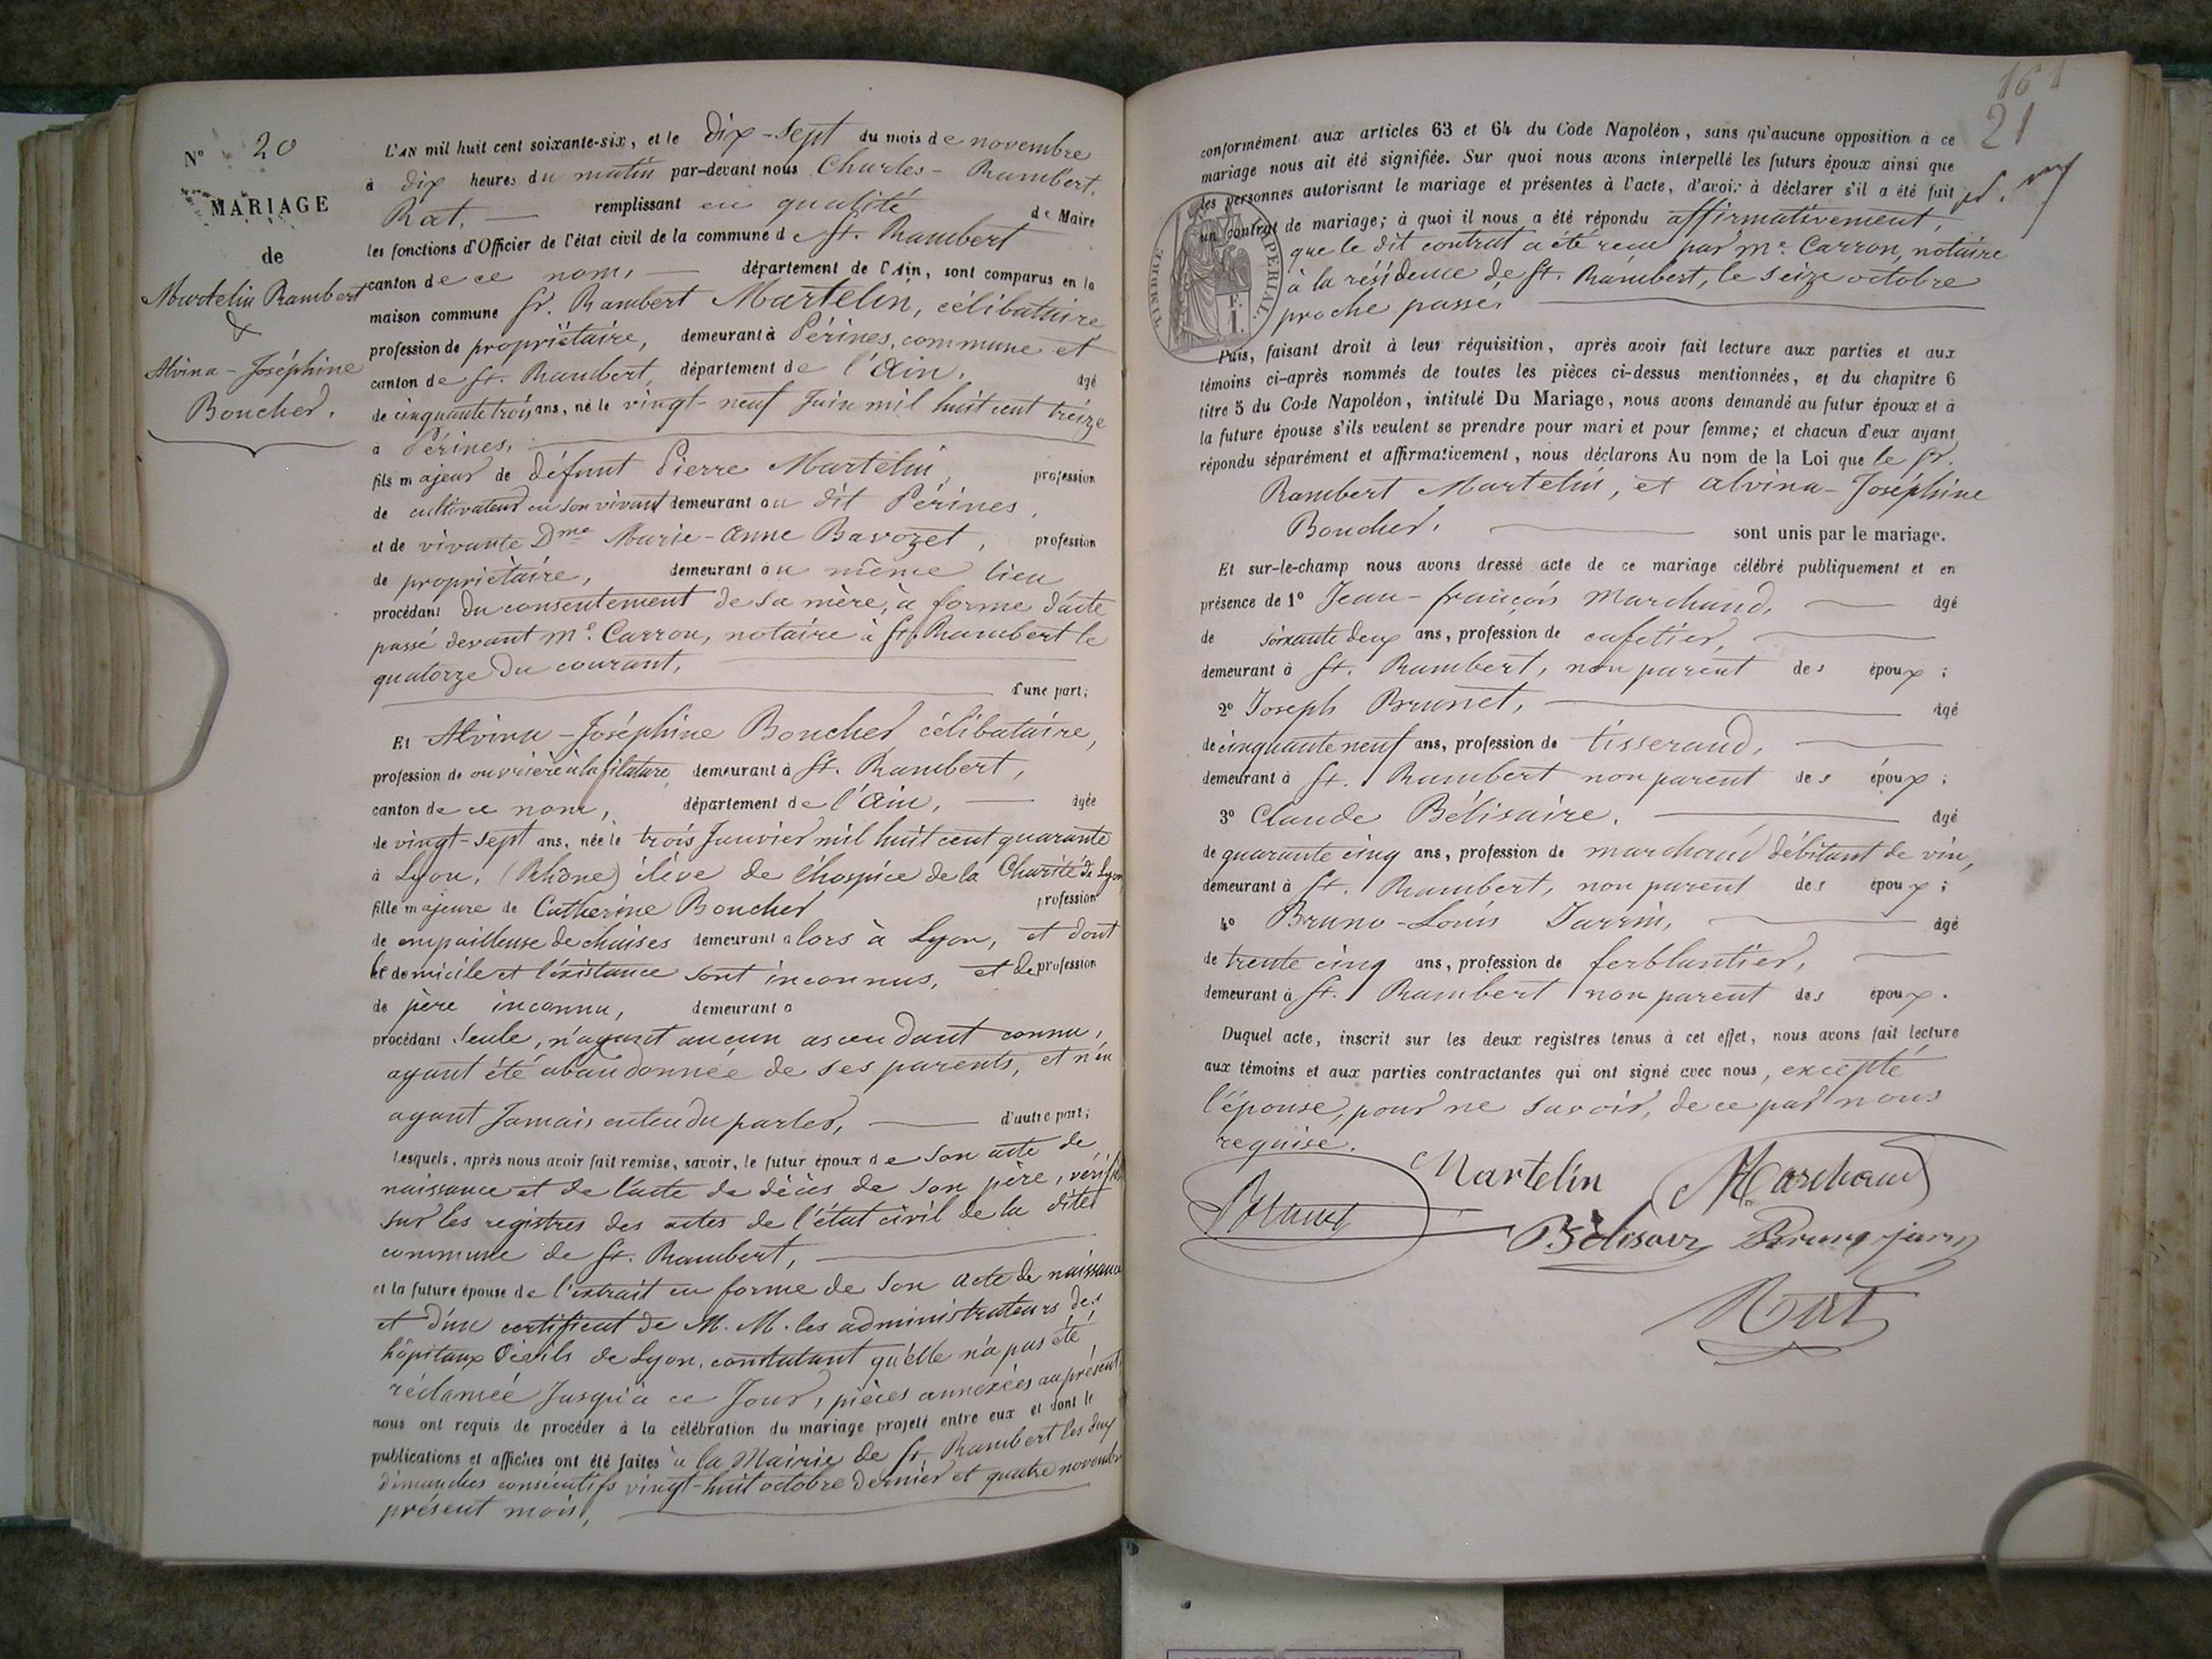 N° 20
MARIAGE
de
Martelin Rambert
&
Alvina-Joséphine
Boucher.
L'AN mil huit cent soixante-six, et le dix-sept du mois de novembre
à dix heures du matin par-devant nous Charles-Rambert
Rat, remplissant en qualité de Maire
les fonctions d'Officier de l'état civil de la commune de St. Rambert
canton de ce nom, département de l'Ain, sont comparus en la
maison commune Sr. Rambert Martelin, célibataire
profession de propriétaire, demeurant à Pérines, commune et
canton de St. Rambert, département de l'Ain, âgé
de cinquante trois ans, né le vingt-neuf Juin mil huit cent treize
à Pérines,
fils majeur de défunt Pierre Martelin, profession
de cultivateur en son vivant demeurant au dit Pérines,
et de vivante Dme Marie-Anne Bavozet, profession
de propriétaire, demeurant au même lieu
procédant du consentement de sa mère, à forme d'acte
passé devant Me. Carron, notaire à St. Rambert le
quatorze du courant,
d'une part;
Et Alvina-Joséphine Boucher célibataire,
profession de ouvrière à la filature, demeurant à St. Rambert,
canton de ce nom, département de l'Ain, âgée
de vingt-sept ans, née le trois Janvier mil huit cent quarante
à Lyon, (Rhône) élève de l'hospice de la Charité de Lyon
fille majeure de Catherine Boucher profession
de empailleuse de chaises demeurant alors à Lyon, et dont
le domicile et l'existance sont inconnus, et de profession
de père inconnu, demeurant à
procédant seule, n'ayant aucun ascendant connu,
ayant été abandonnée de ses parents, et n'en
ayant Jamais entendu parler, d'autre part;
Lesquels, après nous avoir fait remise, savoir, le futur époux de son acte de
naissance et de l'acte de décès de son père, vérifiés
sur les registres des actes de l'état civil de la dite
commune de St. Rambert,
et la future épouse de l'extrait en forme de son acte de naissance
et d'un certificat de M. M. les administrateurs des
hôpitaux civils de Lyon, constatant qu'elle n'a pas été
réclamée Jusqu'à ce Jour, pièces annexées au présent
nous ont requis de procéder à la célébration du mariage projeté entre eux et dont le
publications et affiches ont été faites à la Mairie de St. Rambert les deux
dimanches consécutifs vingt-huit octobre dernier et quatre novembre
présent mois,
161
21
conformément aux articles 63 et 64 du Code Napoléon, sans qu'aucune opposition à ce
mariage nous ait été signifiée. Sur quoi nous avons interpellé les futurs époux ainsi que
les personnes autorisant le mariage et présentes à l'acte, d'avoir à déclarer s'il a été fait
un contrat de mariage; à quoi il nous a été répondu affirmativement,
que le dit contrat a été reçu par Me. Carron, notaire
à la résidence de St. Rambert, le seize octobre
proche passé.
TIMBRE IMPERIAL
F.
1.
Puis, faisant droit à leur réquisition, après avoir fait lecture aux parties et aux
témoins ci-après nommés de toutes les pièces ci-dessus mentionnées, et du chapitre 6
titre 5 du Code Napoléon, intitulé Du Mariage, nous avons demandé au futur époux et à
la future épouse s'ils veulent se prendre pour mari et pour femme; et chacun d'eux ayant
répondu séparément et affirmativement, nous déclarons Au nom de la Loi que le Sr.
Rambert Martelin, et Alvina-Joséphine
Boucher, sont unis par le mariage.
Et sur-le-champ nous avons dressé acte de ce mariage célébré publiquement et en
présence de 1° Jean-françois Marchand, âgé
de soixante deux ans, profession de cafetier,
demeurant à St. Rambert, non parent des époux;
2° Joseph Brunet, âgé
de cinquante neuf ans, profession de tisserand,
demeurant à St. Rambert non parent des époux;
3° Claude Bélisaire. âgé
de quarante cinq ans, profession de marchand débitant de vin,
demeurant à St. Rambert, non parent des époux;
4° Bruno-Louis Jarrin, âgé
de trente cinq ans, profession de ferblantier,
demeurant à St. Rambert non parent des époux.
Duquel acte, inscrit sur les deux registres tenus à cet effet, nous avons fait lecture
aux témoins et aux parties contractantes qui ont signé avec nous, excepté
l'épouse, pour ne savoir, de ce par nous
requise.
Martelin Marchand
Brunet Bélisair Bruno jarrin
Rat